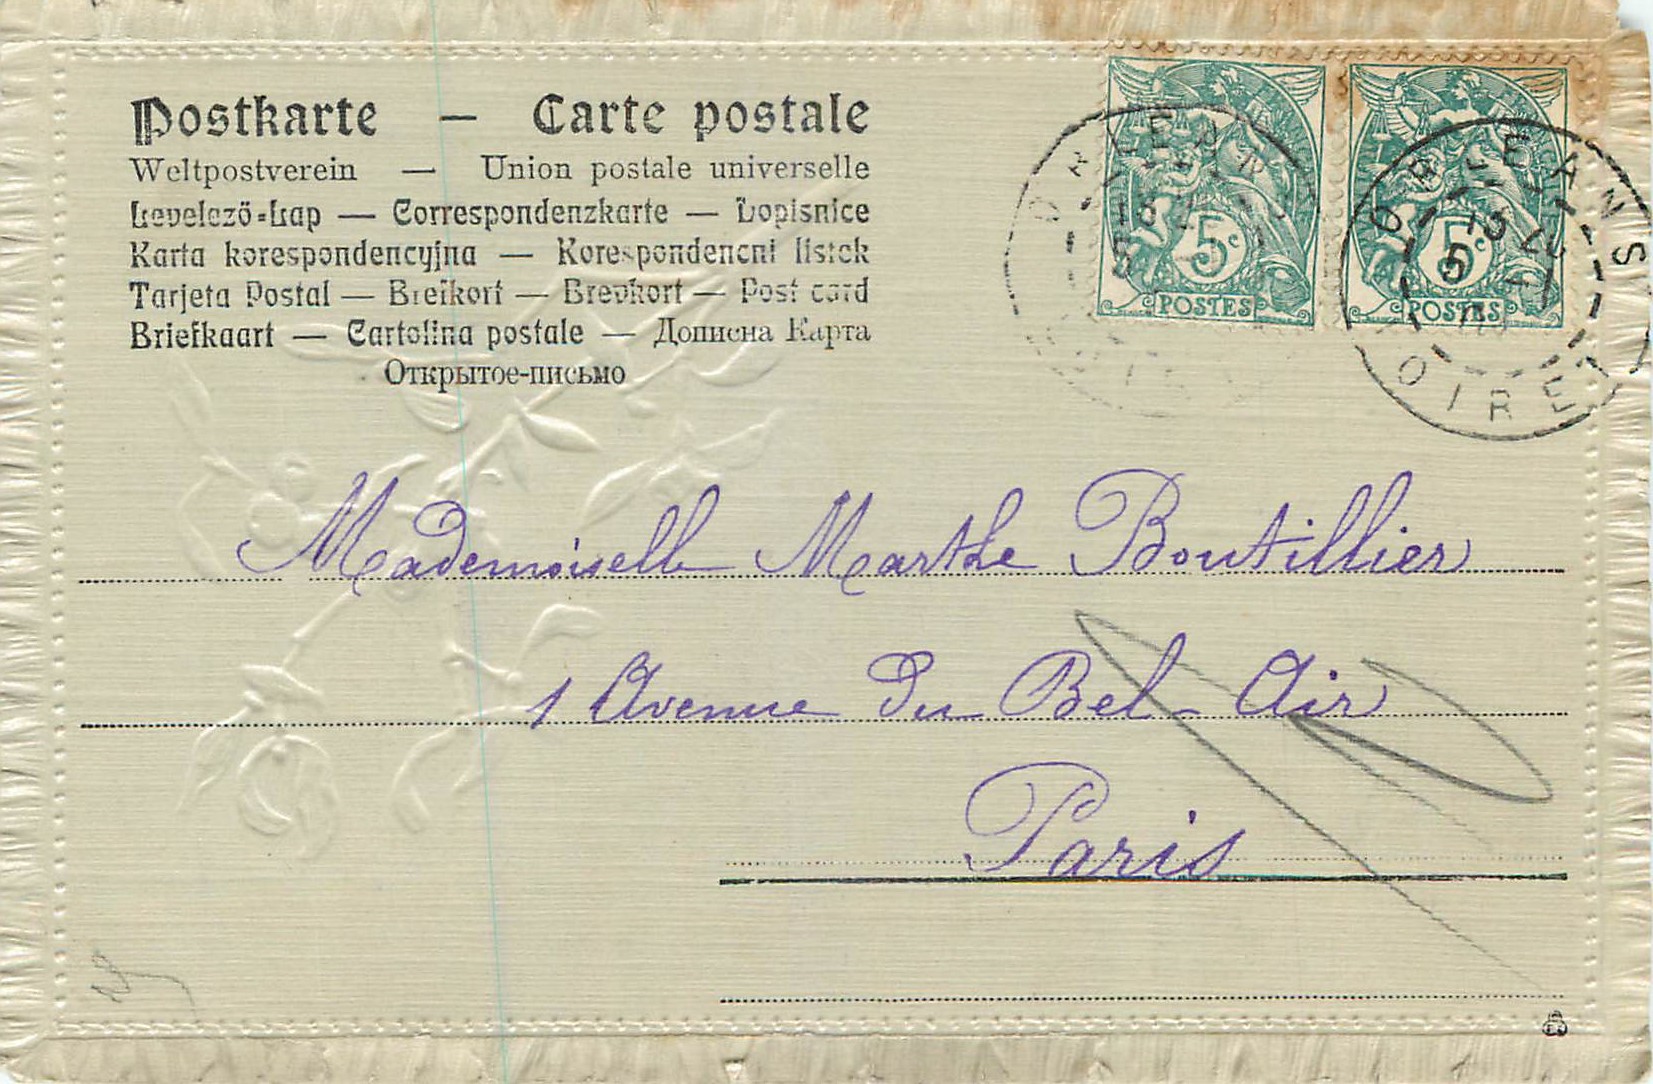 Postkarte — Carte postale
Weltpostverein — Union postale universelle
Levelezö-Lap — Correspondenzkarte — Dopisnice
Karta korespondencyjna — Korespondencni listek
Tarjeta Postal — Brefkort — Brevkort — Post card
Briefkaart — Cartolina postale — Дописна Карта
Открытое-письмо
5c
POSTES
5c
POSTES
ORLEANS
LOIRET
Mademoiselle Marthe Boutillier
1 Avenue du Bel-Air
Paris